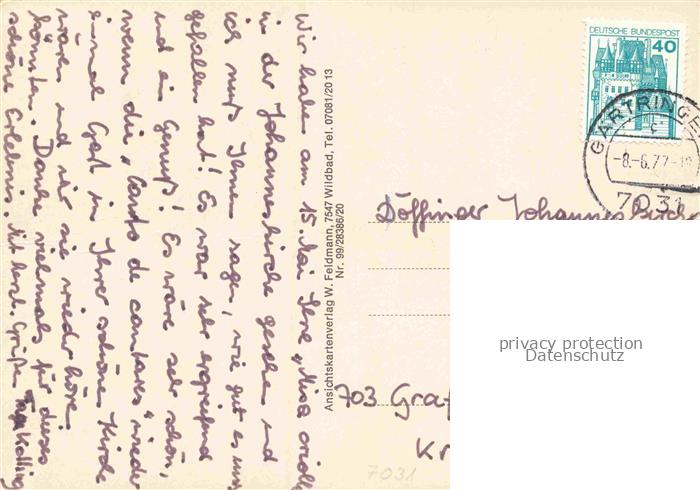 Wir haben am 15. Mai Ihre „Misa criolla
in der Johanneskirche gesehen und
ich muß Ihnen sagen, wie gut es uns
gefallen hat! Es war sehr ergreifend
und ein Genuß! Es wäre sehr schön,
wenn die „Cantos de cantares" wieder
einmal Gast in Ihrer schönen Kirche
wären und wir sie wieder hören
könnten. Danke vielmals für dieses
schöne Erlebnis. Mit herzl. Grüßen
Ansichtskartenverlag W. Feldmann, 7547 Wildbad, Tel. 07081/20 13
Nr. 99/28386/20
DEUTSCHE BUNDESPOST
40
GÄRTRINGE
c
-8.-6.77-
7031
Döffinger Johanneskirche
703 Graf
Kr
7031
privacy protection
Datenschutz